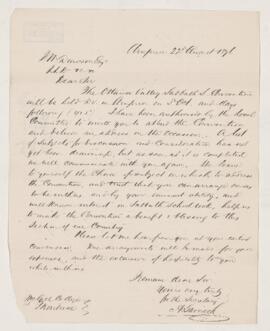 Arnprior 22nd August 1876
Dear Sir
The Ottawa Valley Sabbath S. Convention
will be held D.V. in Arnprior on 5th Oct and days
following. I have been authorised by the Local
Committee to write you about the Convention
and deliver an address on the occasion. A list
of subjects for discussion and consideration has not
yet been drawn up, but as soon as it is completed
we will communicate with you again. We leave
to yourself the choice of subject on which to address
the Convention and trust that you can arrange
to be with us, and by your
well known interest in Sabbath School work, help us
to make the Convention a benefit & blessing to this
Section of our Country
Please let me hear from you at your earliest
convenience. We arrangements will be made for your
expenses, and the exercise of hospitality to you
while with us
I remain dear Sir
Yours very truly
Montreal